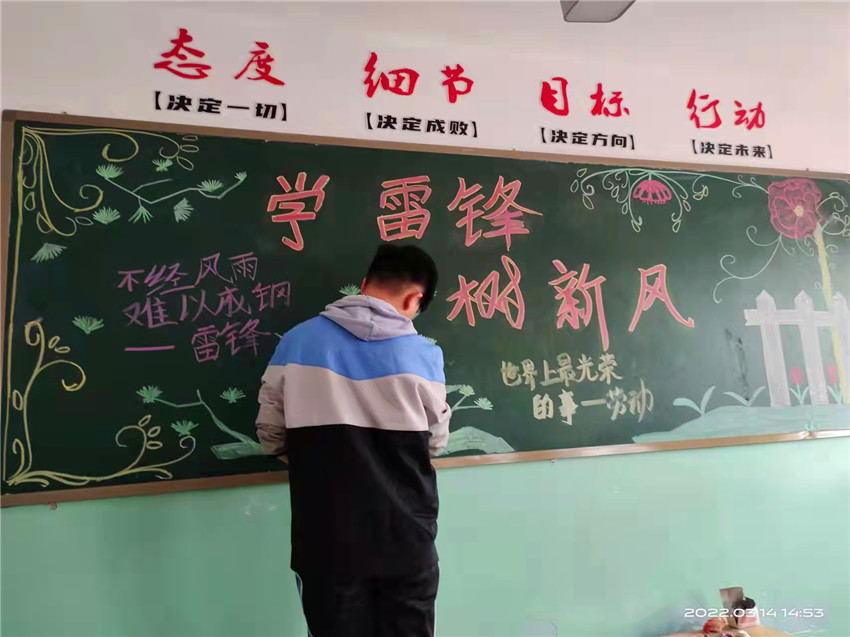 态度 细节 目标 行动
【决定一切】 【决定成败】 【决定方向】 【决定未来】
学雷锋
树新风
不经风雨
难以成钢
—雷锋
世界上最光荣
的事—劳动
2022.03.14 14:53